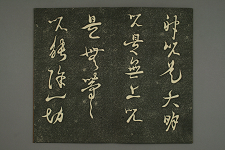 神咒是大明
咒是無上咒
是無等々
咒能除一切